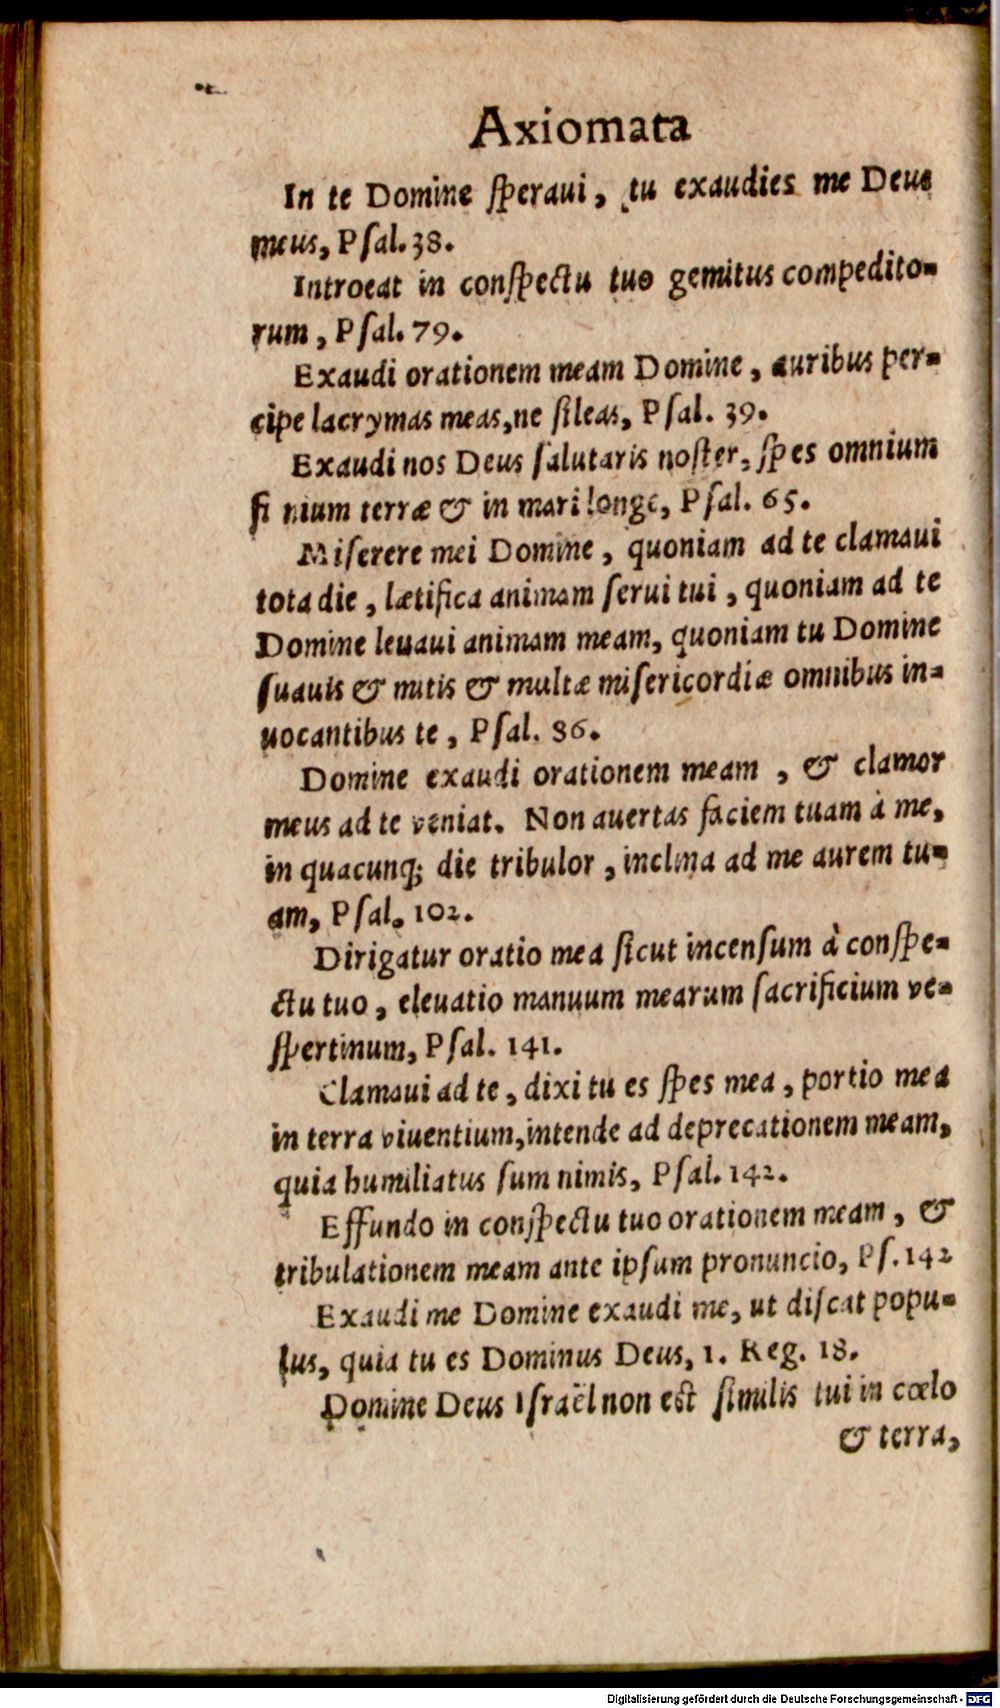 Axiomata
In te Domine ſperaui, tu exaudies me Deus
meus, Pſal. 38.
Introeat in conſpectu tuo gemitus compedito-
rum, Pſal. 79.
Exaudi orationem meam Domine, auribus per-
cipe lacrymas meas, ne ſileas, Pſal. 39.
Exaudi nos Deus ſalutaris noſter, ſpes omnium
finium terræ & in mari longe, Pſal. 65.
Miſerere mei Domine, quoniam ad te clamaui
tota die, lætifica animam ſerui tui, quoniam ad te
Domine leuaui animam meam, quoniam tu Domine
ſuauis & mitis & multæ miſericordiæ omnibus in-
uocantibus te, Pſal. 86.
Domine exaudi orationem meam, & clamor
meus ad te veniat. Non auertas faciem tuam à me,
in quacunq; die tribulor, inclina ad me aurem tu-
am, Pſal. 102.
Dirigatur oratio mea ſicut incenſum à conſpe-
ctu tuo, eleuatio manuum mearum ſacrificium ve-
ſpertinum, Pſal. 141.
Clamaui ad te, dixi tu es ſpes mea, portio mea
in terra viuentium, intende ad deprecationem meam,
quia humiliatus ſum nimis, Pſal. 142.
Effundo in conſpectu tuo orationem meam, &
tribulationem meam ante ipſum pronuncio, Pſ. 142
Exaudi me Domine exaudi me, ut diſcat popu-
lus, quia tu es Dominus Deus, 1. Reg. 18.
Domine Deus Iſraël non eſt ſimilis tui in cœlo
& terra,
Digitalisierung gefördert durch die Deutsche Forschungsgemeinschaft - DFG